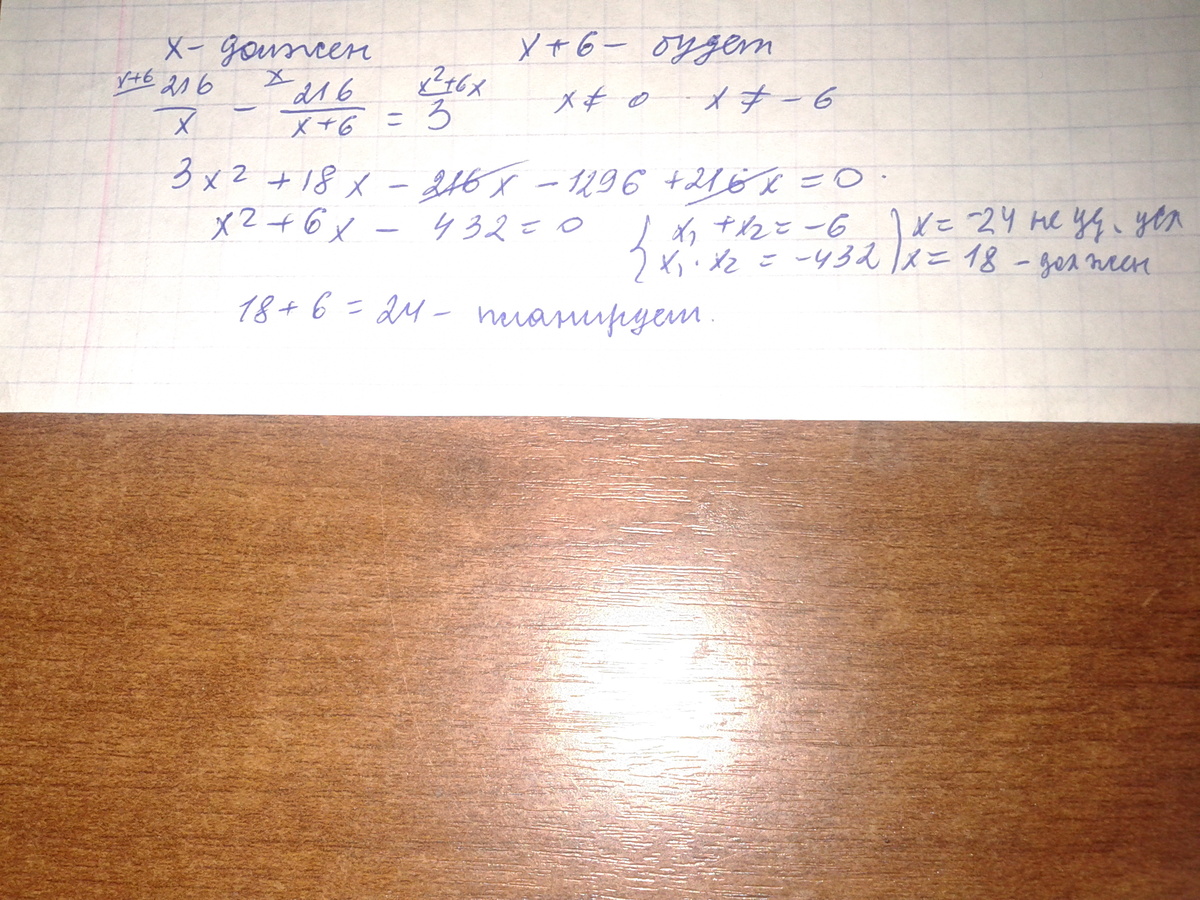 x - должен x + 6 - будет
x+6 216/x - x 216/x+6 = x²+6x 3 x ≠ 0 x ≠ -6
3x² + 18x - 216x - 1296 + 216x = 0.
x² + 6x - 432 = 0 { x₁ + x₂ = -6 ) x = -24 не уд. усл
x₁ · x₂ = -432 x = 18 - должен
18 + 6 = 24 - планирует.